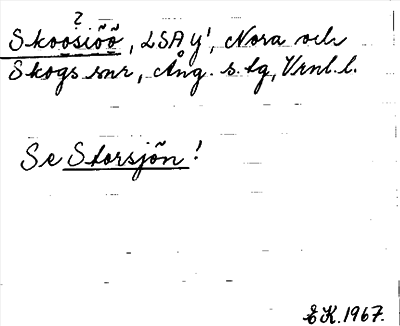 ?
Skoosiõõ, LSAy', Nora och
Skogs snr, Ång. s. tg, Vrnl. l.
Se Storsjön!
EK. 1967.